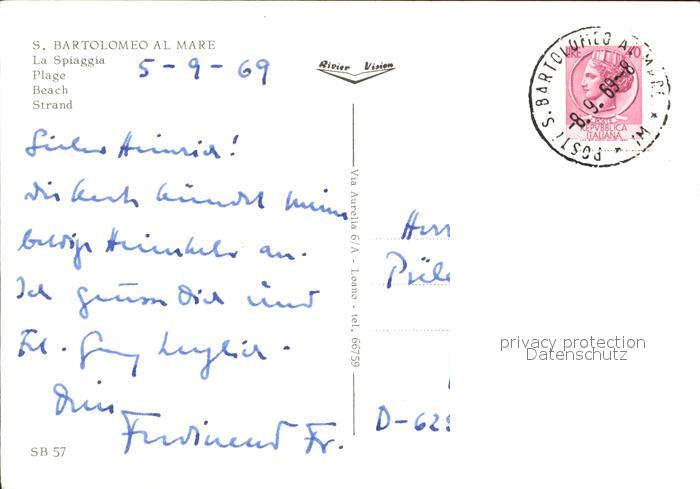 S. BARTOLOMEO AL MARE
La Spiaggia
Plage
Beach
Strand
5-9-69
Rivier Vision
POSTI S. BARTOLOMEO AL MARE
-8.9.69-8
LIRE 40
REPVBBLICA
ITALIANA
Lieber Heinrich!
die Karte kündet meine
baldige Heimkehr an.
Ich grüsse Dich und
Frl.
Dein
Ferdinand Fr.
Via Aurelia 6/A - Loano - tel. 66759
Herr
D-62
privacy protection
Datenschutz
SB 57